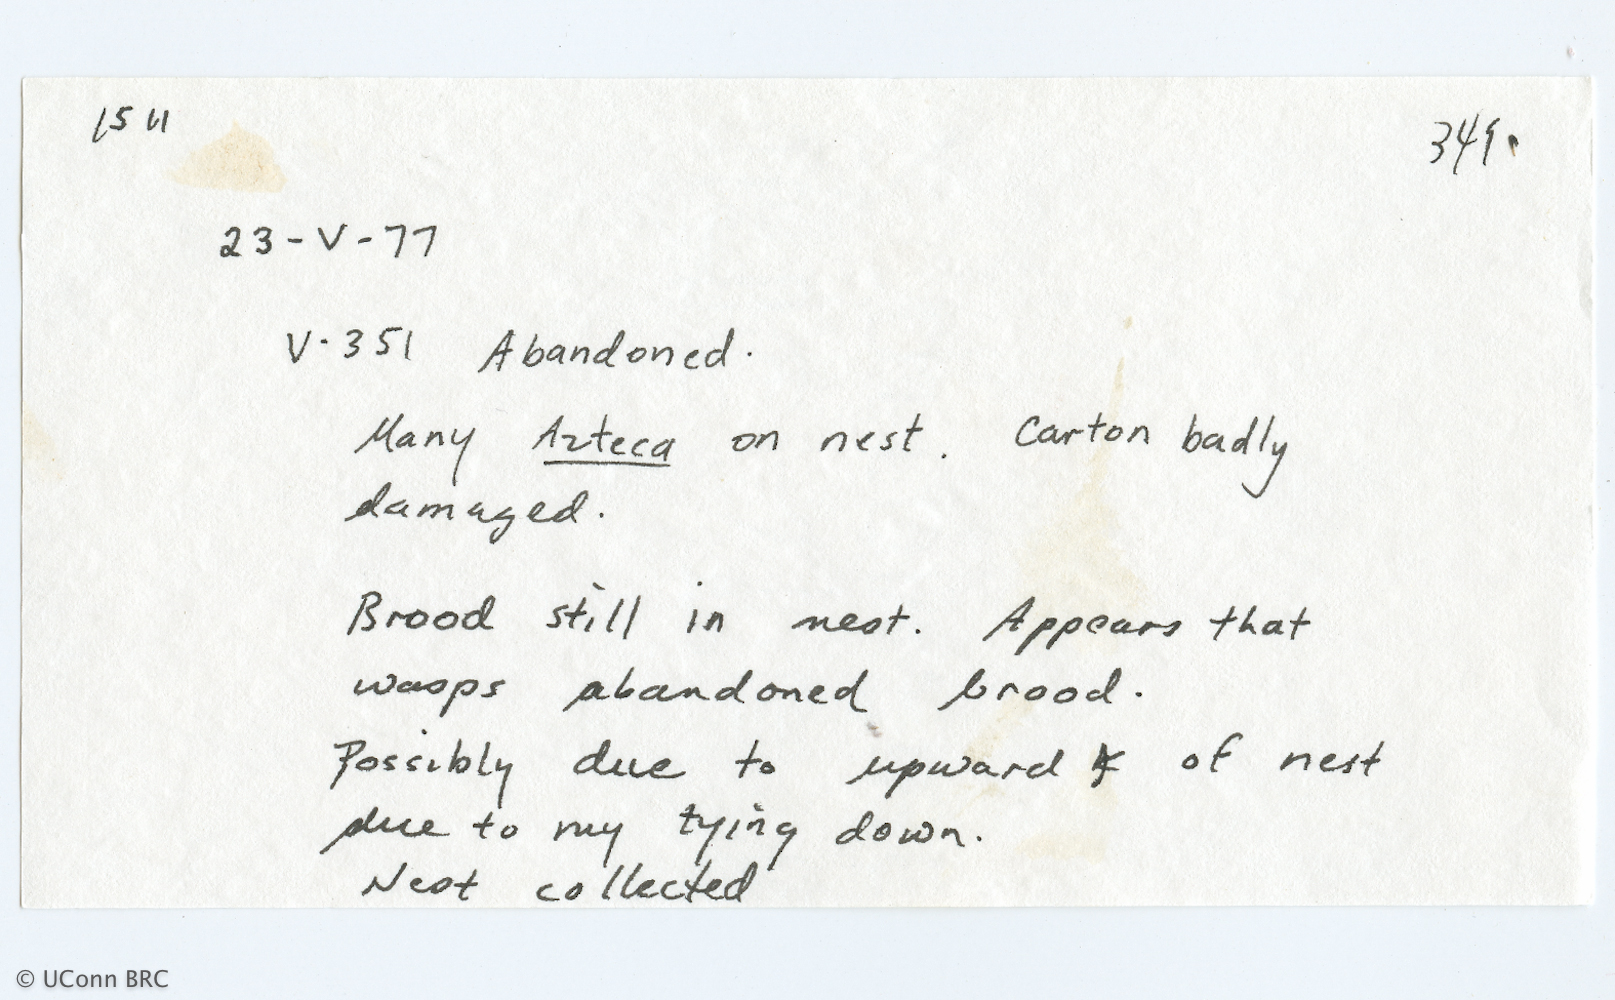 1511
349.
23-V-77
V-351 Abandoned.
Many Azteca on nest. Carton badly
damaged.
Brood still in nest. Appears that
wasps abandoned brood.
Possibly due to upward of nest
due to my tying down.
Nest collected
© UConn BRC